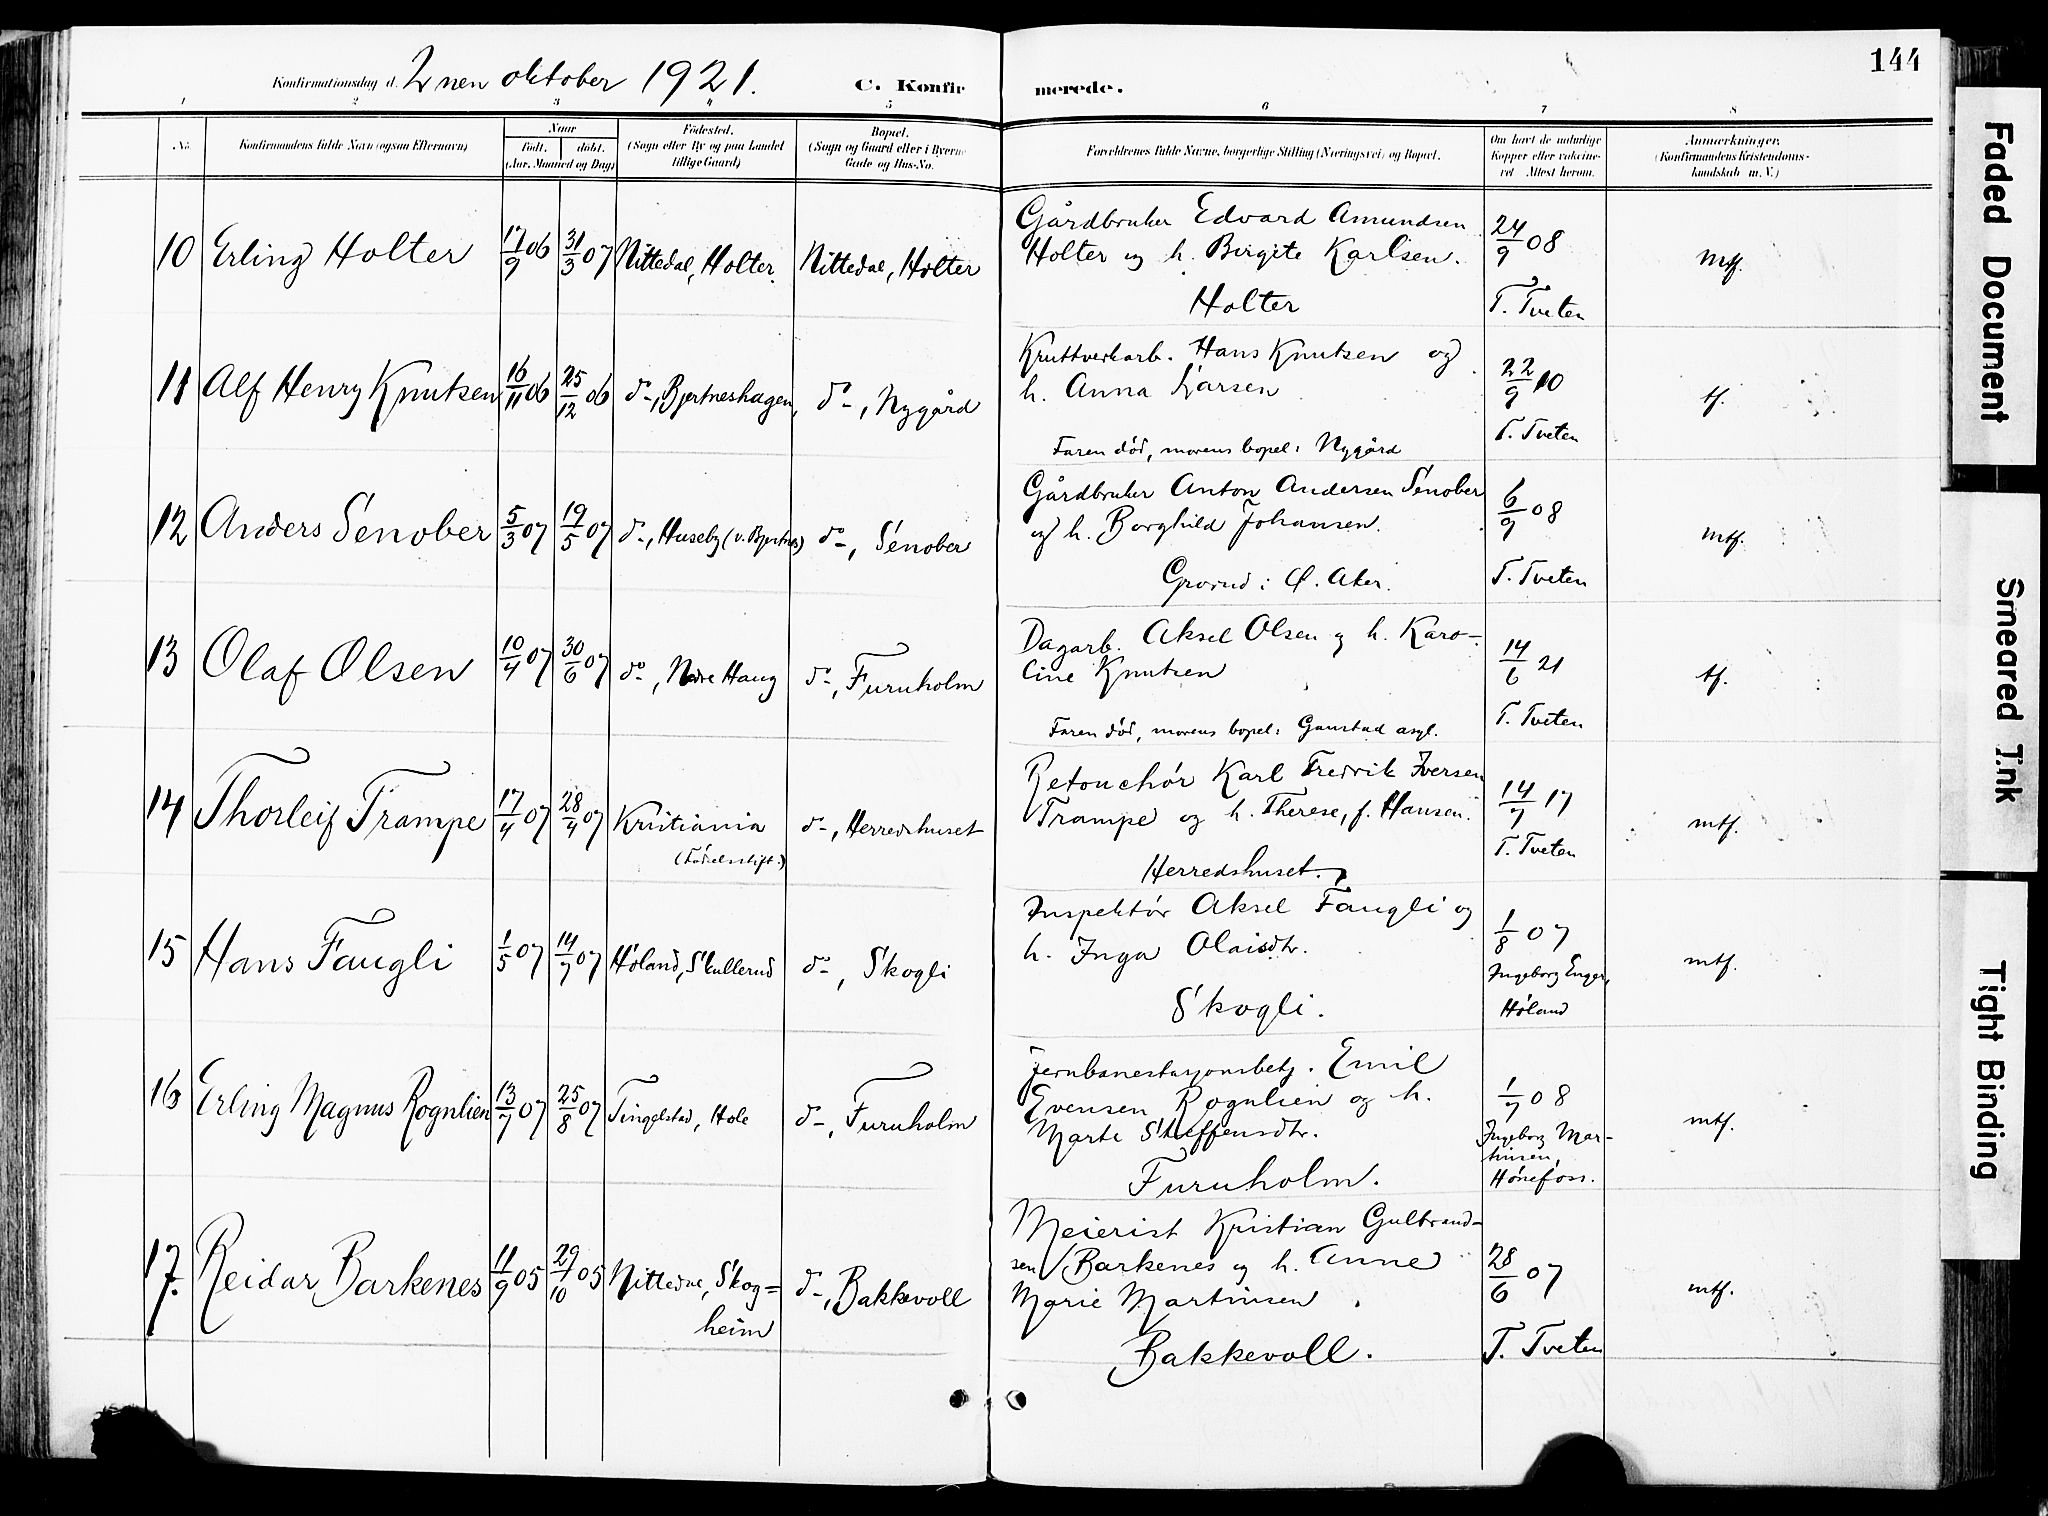 144
Konfirmationsdag d. 2nen oktober 1921.
C. Konfirmerede.
1 2 3 4 5 6 7 8
No.
Konfirmandens fulde Navn (ogsaa Efternavn)
Naar
födt. döbt.
(Aar, Maaned og Dag)
Födested.
(Sogn eller By og paa Landet
tillige Gaard)
Bopæl.
(Sogn og Gaard eller i Byerne
Gade og Hus-No.
Forældrenes fulde Navne, borgerlige Stilling (Næringsvei) og Bopæl.
Om havt de naturlige
Kopper eller vakcine-
ret Attest herom.
Anmærkninger.
(Konfirmandens Kristendoms-
kundskab m. V.)
10 Erling Holter 17/9 06 31/3 07 Nittedal, Holter. Nittedal, Holter
Gårdbruker Edvard Amundsen
Holter og h. Birgite Karlsen.
Holter
24/9 08
T. Tveten
mtf.
11 Alf Henry Knutsen 16/11 06 25/12 06 do-, Bjertneshagen, do-, Nygård
Kruttverkarb. Hans Knutsen og
h. Anna Larsen
Faren død, morens bopel: Nygård
22/9 10
T. Tveten
tf.
12 Anders Senober 5/3 07 19/5 07 do-, Huseby (v. Bjertnes) do-, Senober
Gårdbruker Anton Andersen Senober
og h. Borghild Johansen.
Grorud i Ø. Aker.
6/9 08
T. Tveten
mtf.
13 Olaf Olsen 10/4 07 30/6 07 do-, Nedre Haug do-, Furuholm
Dagarb. Aksel Olsen og h. Karo-
line Knutsen
Faren død, morens bopel: Gaustad asyl.
14/6 21
T. Tveten
tf.
14 Thorleif Trampe 17/4 07 28/4 07 Kristiania
(Fødselsstift.)
do-, Herredshuset
Retouchør Karl Fredrik Iversen
Trampe og h. Therese, f. Hansen.
Herredshuset.
14/7 17
T. Tveten
mtf.
15 Hans Faugli 1/5 07 14/7 07 Høland, Skullerud do-, Skogli
Inspektør Aksel Faugli og
h. Inga Olaisdtr.
Skogli.
1/8 07
Ingeborg Enger,
Høland
mtf.
16 Erling Magnus Rognlien 13/7 07 25/8 07 Tingelstad, Hole do-, Furuholm
Jernbanestasjonsbetj. Emil
Evensen Rognlien og h.
Marte Steffensdtr.
Furuholm.
1/7 08
Ingeborg Mar-
tinsen,
Hønefoss.
mtf.
17. Reidar Barkenes 11/9 05 29/10 05 Nittedal, Skog=
heim
do-, Bakkevoll
Meierist Kristian Gulbrand-
sen Barkenes og h. Anne
Marie Martinsen
Bakkevoll.
28/6 07
T. Tveten
mtf.
Faded Document
Smeared Ink
Tight Binding